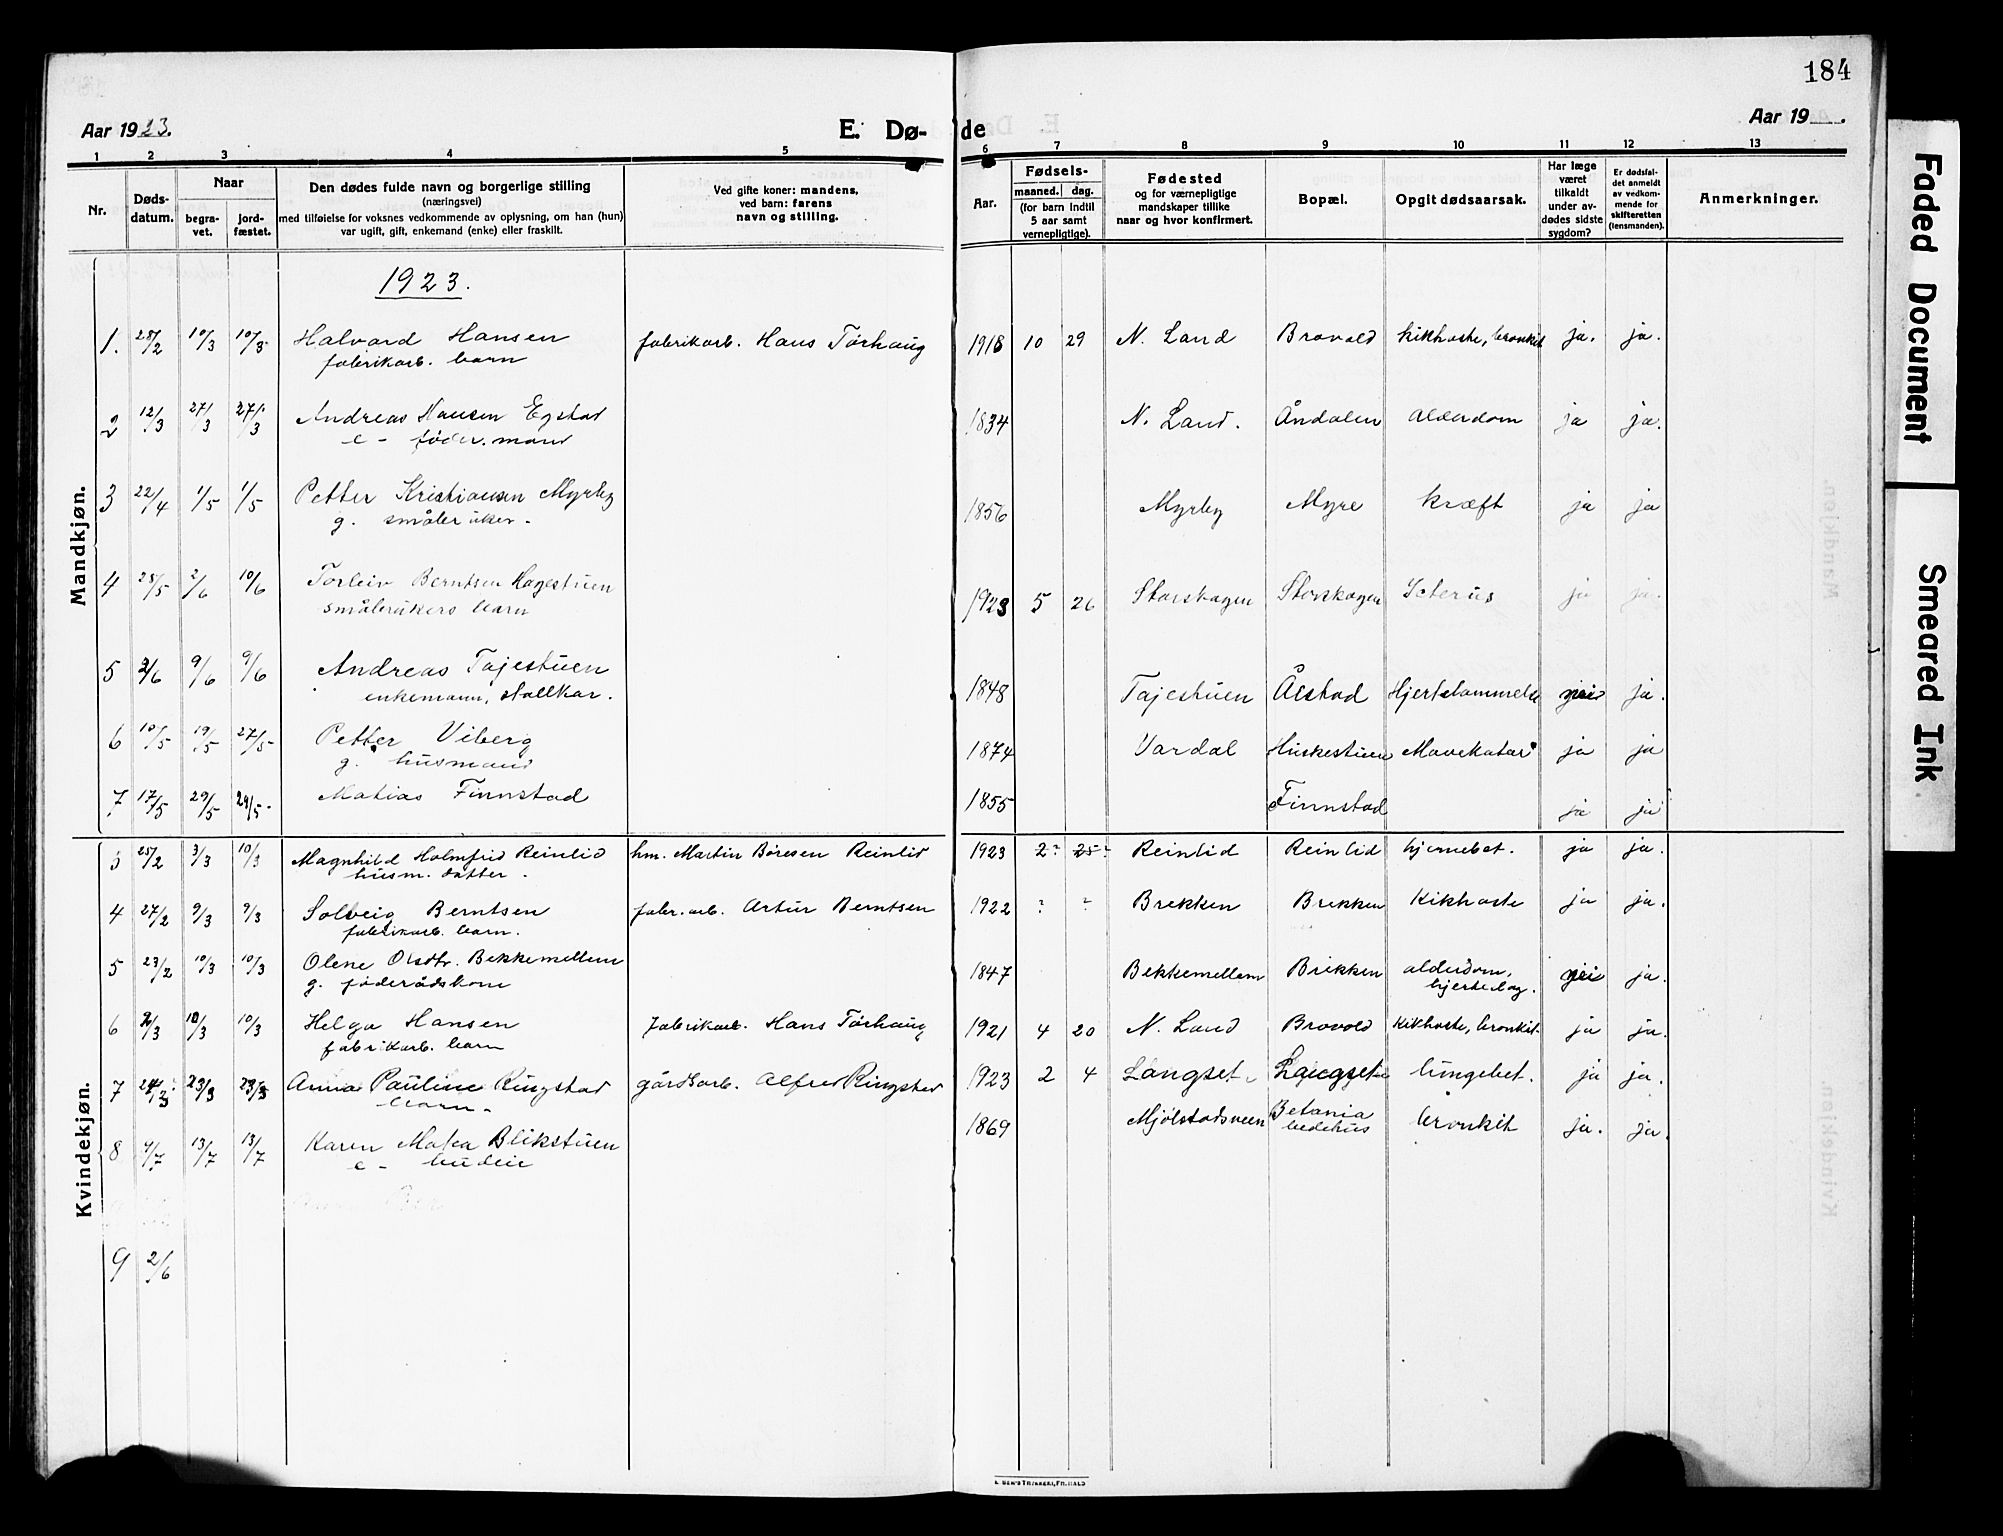 184
Aar 1923.
E. Dø-
de
Aar 19 .
1 2 3 4 5
6 7 8 9 10 11 12 13
Nr.
Døds-
datum.
Naar
begra-
vet.
jord-
fæstet.
Den dødes fulde navn og borgerlige stilling
(næringsvei)
med tilføielse for voksnes vedkommende av oplysning, om han (hun)
var ugift, gift, enkemand (enke) eller fraskilt.
Ved gifte koner: mandens,
ved barn: farens
navn og stilling.
Aar.
Fødsels-
maaned. dag.
(for barn indtil
5 aar samt
vernepligtige).
Fødested
og for værnepligtige
mandskaper tillike
naar og hvor konfirmert.
Bopæl.
Opgit dødsaarsak.
Har læge
været
tilkaldt
under av-
dødes sidste
sygdom?
Er dødsfal-
det anmeldt
av vedkom-
mende for
skifteretten
(lensmanden).
Anmerkninger.
Mandkjøn.
1923.
1. 28/2 10/3 10/3 Halvard Hansen fabrikarb. Hans Tørhaug 1918 10 29 N. Land Brovold kikhoste, bronkit ja. ja.
fabrikarb. barn
2 12/3 27/3 27/3 Andreas Hansen Egstad 1834 N. Land. Åndalen alderdom ja ja.
e - føder. mand
3 22/4 1/5 1/5 Petter Kristiansen Myrby 1856 Myrby Myre kræft ja ja
g. småbruker.
4 28/5 2/6 10/6 Torleiv Berntsen Hagestuen 1923 5 26 Storskogen Storskogen Icterus ja ja.
småbrukers barn
5 2/6 9/6 9/6 Andreas Tajestuen 1848 Tajestuen Ålstad Hjertelammelse nei ja.
enkemann, stallkar.
6 10/5 19/5 27/5 Petter Viberg 1874 Vardal Huskestuen Mavekatar ja ja
g. husmand
7 17/5 29/5 29/5 Matias Finnstad 1855 Finnstad ja ja
Kvindekjøn.
3 25/2 3/3 10/3 Magnhild Holmfrid Reinlid hm. Martin Børesen Reinlid 1923 2? 25? Reinlid Reinlid hjernebet. ja ja.
husm. datter.
4 27/2 9/3 9/3 Solveig Berntsen fabr. arb. Artur Berntsen 1922 ? ? Brekken Brekken Kikhoste ja ja.
fabrikarb. barn.
5 23/2 10/3 10/3 Olene Olsdtr. Bekkemellem 1847 Bekkemellem Brekken alderdom, nei ja.
g. føderådskone hjerteslag.
6 2/3 10/3 10/3 Helga Hansen fabrikarb. Hans Tørhaug 1921 4 20 N. Land Brovold Kikhoste, bronkit. ja ja.
fabrikarb. barn
7 23/3 23/3 Anna Pauline Ringstad gårdsarb. Alfred Ringstad 1923 2 4 Langset Langset lungebet. ja ja.
barn.
8 4/7 13/7 13/7 Karen Blikstuen 1869 Mjølstadsveen Betania bronkit ja. ja.
e - budeie bedehus
9 2/6
Faded Document
Smeared Ink.